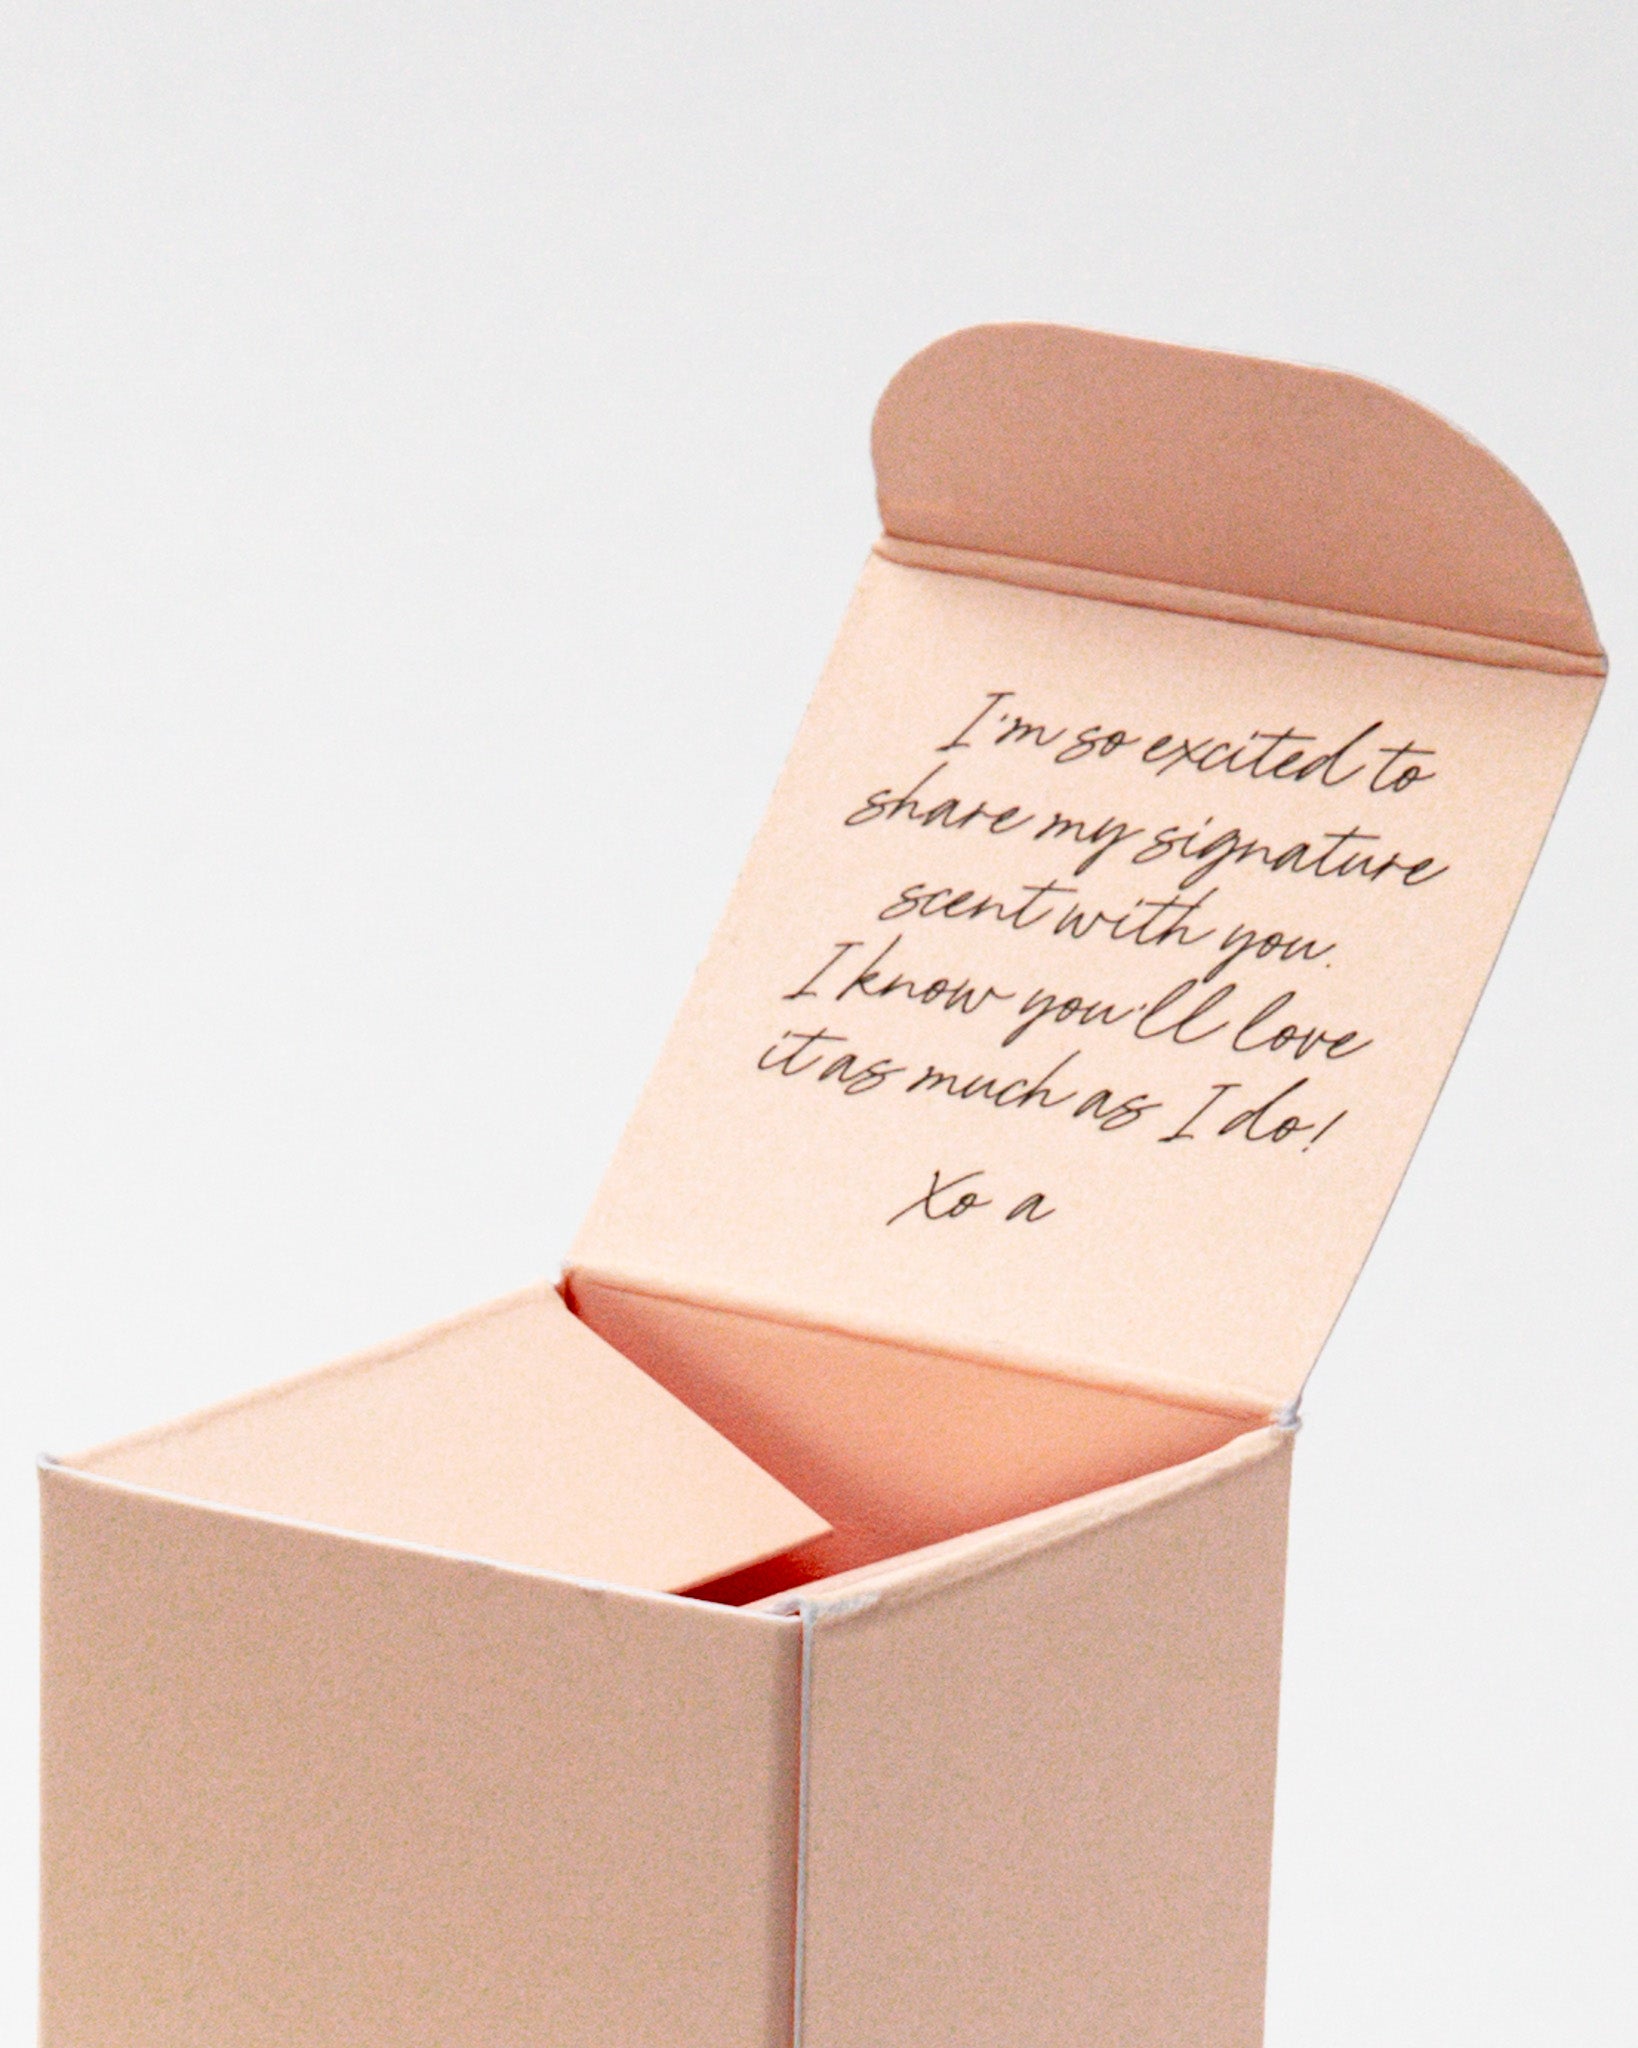 I'm so excited to
share my signature
scent with you.
I know you'll love
it as much as I do!
Xo a